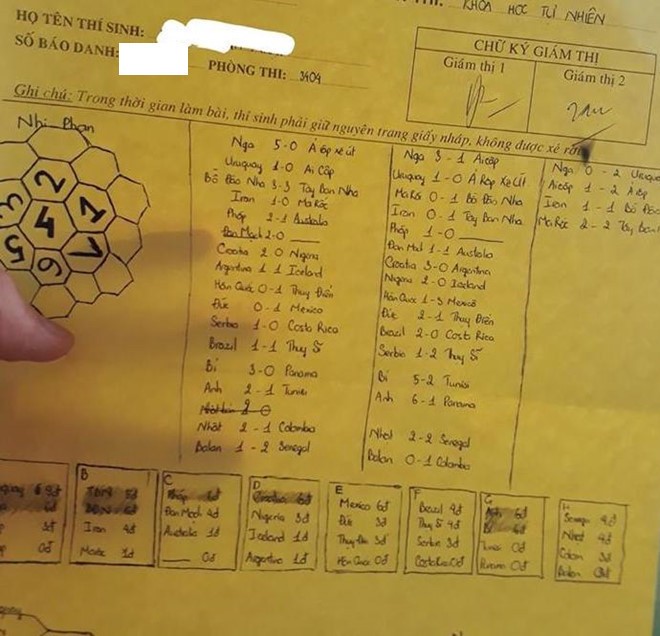 THI: KHOA HỌC TỰ NHIÊN
HỌ TÊN THÍ SINH:
SỐ BÁO DANH:
PHÒNG THI: 3404
CHỮ KÝ GIÁM THỊ
Giám thị 1
Giám thị 2
Ghi chú: Trong thời gian làm bài, thí sinh phải giữ nguyên trang giấy nháp, không được xé rời
Nhị Phan
2
3
1
4
5
6
1
Nga 5-0 Ả Rập xê út
Uruguay 1-0 Ai Cập
Bồ Đào Nha 3-3 Tây Ban Nha
Iran 1-0 Ma Rốc
Pháp 2-1 Australia
Đan Mạch 2-0 ___
Croatia 2 0 Nigeria
Argentina 1 1 Iceland
Hàn Quốc 0-1 Thụy Điển
Đức 0-1 Mexico
Serbia 1-0 Costa Rica
Brazil 1-1 Thụy Sĩ
Bỉ 3-0 Panama
Anh 2-1 Tunisi
Nhật 2-1 Colombia
Balan 1-2 Senegal
Nga 3-1 Ai cập
Uruguay 1-0 Ả Rập Xê Út
Ma Rốc 0-1 Bồ Đào Nha
Iran 0-1 Tây Ban Nha
Pháp 1-0 ___
Đan Mạch 1-1 Australia
Croatia 3-0 Argentina
Nigeria 2-0 Iceland
Hàn Quốc 1-3 Mexico
Đức 2-1 Thụy Điển
Brazil 2-0 Costa Rica
Serbia 1-2 Thụy Sĩ
Bỉ 5-2 Tunisi
Anh 6-1 Panama
Nhật 2-2 Senegal
Balan 0-1 Colombia
Nga 0-2 Urugua
Ai cập 1-2 Ả Rập
Iran 1-1 Bồ Đào
Ma Rốc 2-2 Tây Ban
6đ
3đ
0đ
B
TBN
BĐN
Iran 4đ
Maroc 1đ
C
Pháp 6đ
Đan Mạch 4đ
Australia 1đ
___ 0đ
D
Croatia 6đ
Nigeria 3đ
Iceland 1đ
Argentina 1đ
E
Mexico 6đ
Đức 3đ
Thụy Điển 3đ
Hàn Quốc 0đ
F
Brazil 4đ
Thụy Sĩ 4đ
Serbia 3đ
Costa Rica 0đ
G
Anh 6đ
Bỉ 6đ
Tunisi 0đ
Panama 0đ
H
Senegal 4đ
Nhật 4đ
Colom 3đ
Balan 0đ